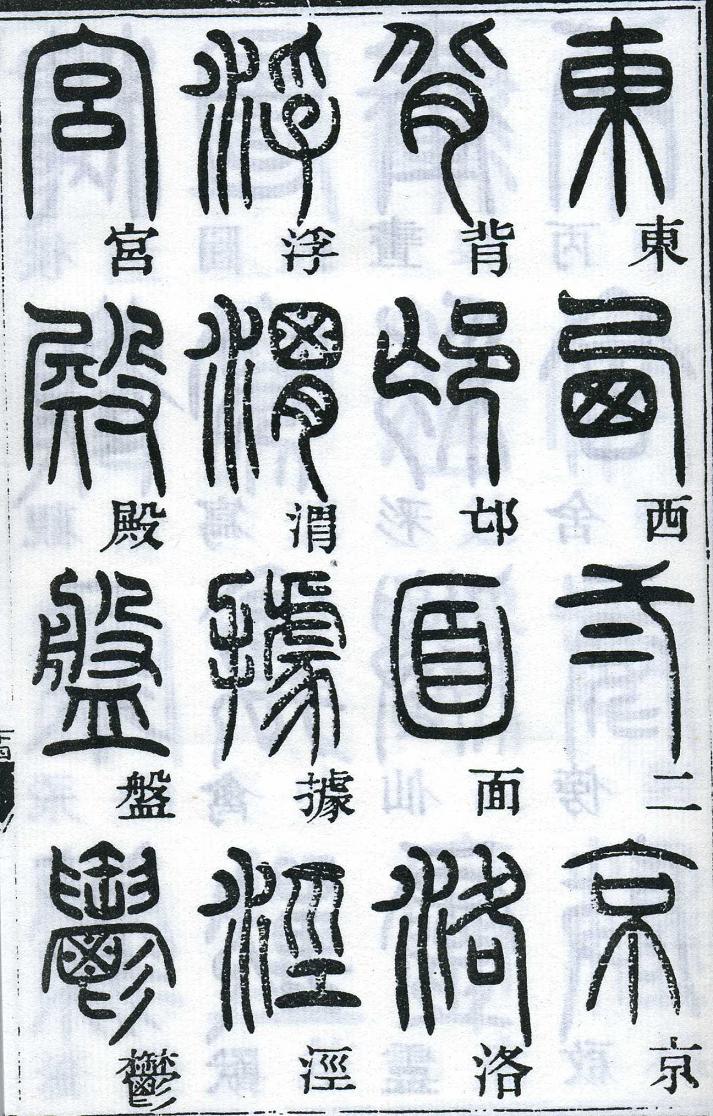 東西二京
背邙面洛
浮渭據涇
宮殿盤鬱